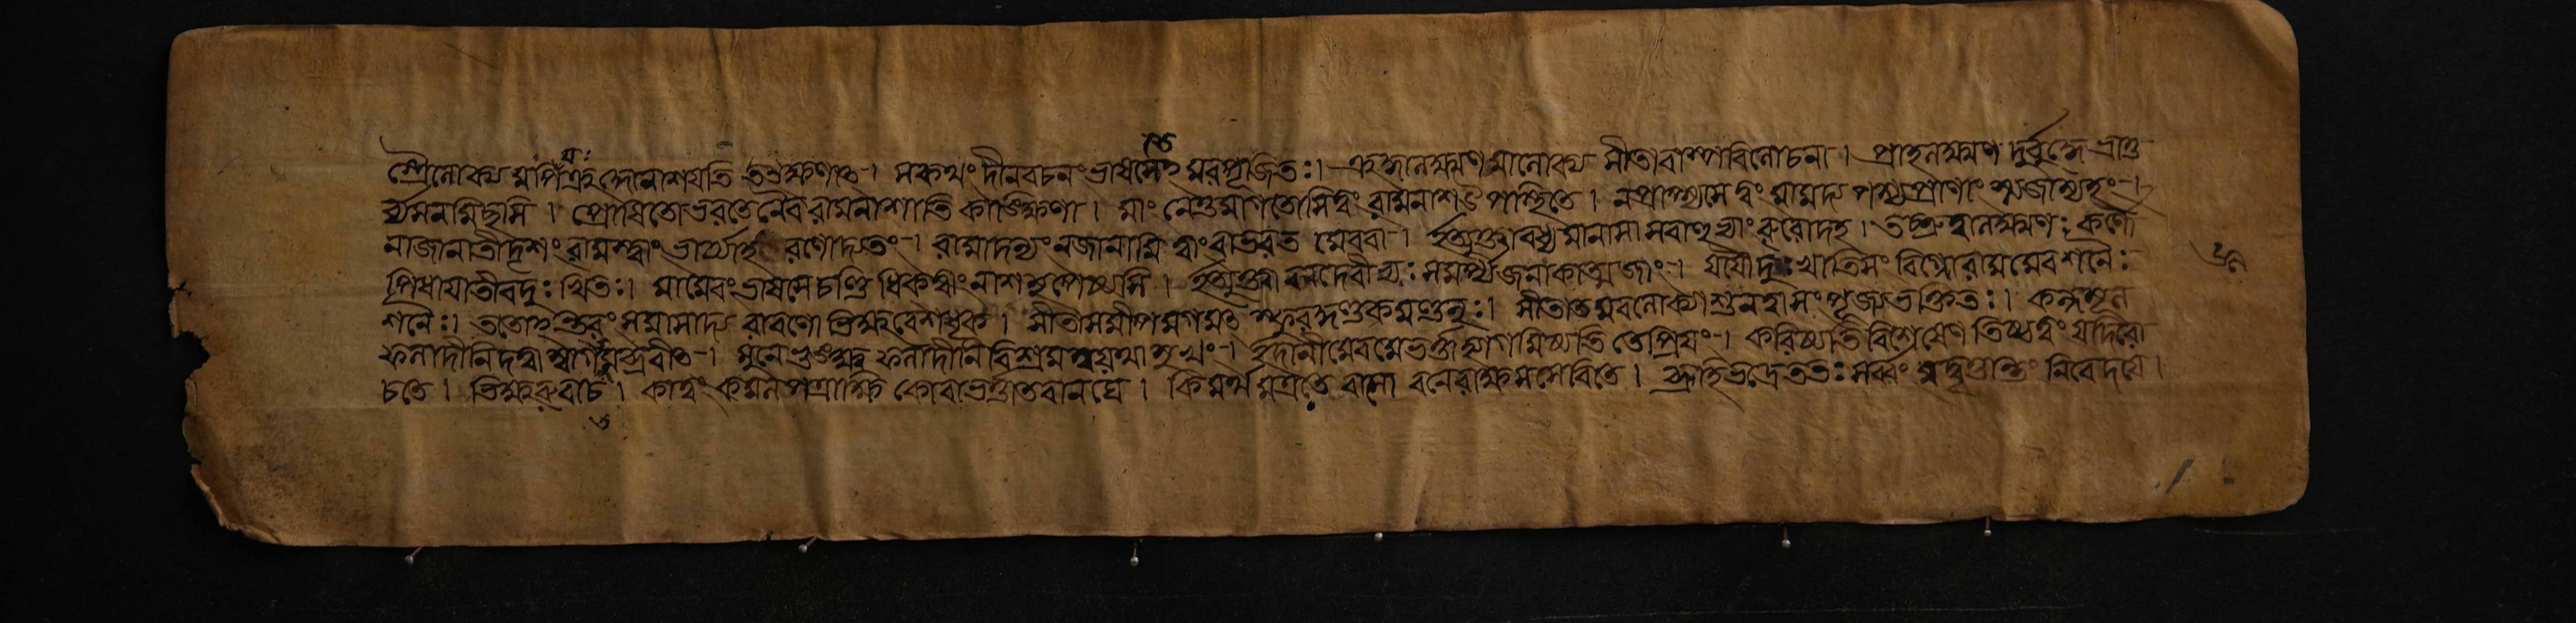 স্ত্রৈলোক্যমপি ক্রুদ্ধোনাশযতি তৎক্ষণাৎ । সকথং দীনবচনং ভাষসেঽমরপূজিতঃ । ক্রুদ্ধালক্ষ্মণমালোক্য সীতাবাষ্পবিলোচনা । প্রাহলক্ষ্মণ দুর্বুদ্ধে ভ্রাতু
র্ব্যসনমিছসি । প্রেষিতোভরতেনৈব রামনাশাভিকাঙ্ক্ষিণা । মাং নেতুমাগতোসিত্বং রামনাশউপস্থিতে । নপ্রাপ্স্যসেত্বং মামদ্য পশ্যপ্রাণাং স্ত্যজাম্যহং ।
নাজানাতীদৃশং রামস্ত্বাং ভার্য্যাহরণোদ্যতং । রামাদন্যং নজানামি ত্বাং বাভরতমেববা । ইত্যুক্ত্বাবধ্যমানাসা স্ববাহুভ্যাং রুরোদহ । তচ্ছ্রুত্বালক্ষ্মণঃ কর্ণৌ
পিধাযাতীবদুঃখিতঃ । মামেবংভাষসেচণ্ডি ধিক্ত্বাংনাশমুপৈষ্যসি । ইত্যুক্ত্বা বনদেবীভ্যঃ সমর্প্যজনকাত্মজাং । যযৌদুঃখাতিসংবিগ্নোরামমেবশনৈঃ
শনৈঃ । ততোন্তরং সমাসাদ্য রাবণো ভিক্ষুবেশধৃক্ । সীতাসমীপমগমৎ স্ফুরদ্দণ্ডকমণ্ডলুঃ । সীতাতমবলোক্যাশুনত্বাসংপূজ্যভক্তিতঃ । কন্দমূল
ফলাদীনিদত্বাস্বাগতমব্রবীৎ । মুনেভুঙ্ক্ষ্ব ফলাদীনিবিশ্রমস্বযথাসুখং । ইদানীমেবমেভর্ত্তাহ্যাগমিষ্যতি তেপ্রিযং । করিষ্যতিবিশেষেণ তিষ্ঠত্বং যদিরো
চতে । ভিক্ষুরুবাচ । কাত্বং কমলপত্রাক্ষি কোবাভর্ত্তাতবানঘে । কিমর্থমত্রতে বাসো বনেরাক্ষসসেবিতে । ব্রূহিভদ্রেততঃ সর্ব্বং স্ববৃত্তান্তং নিবেদযে ।